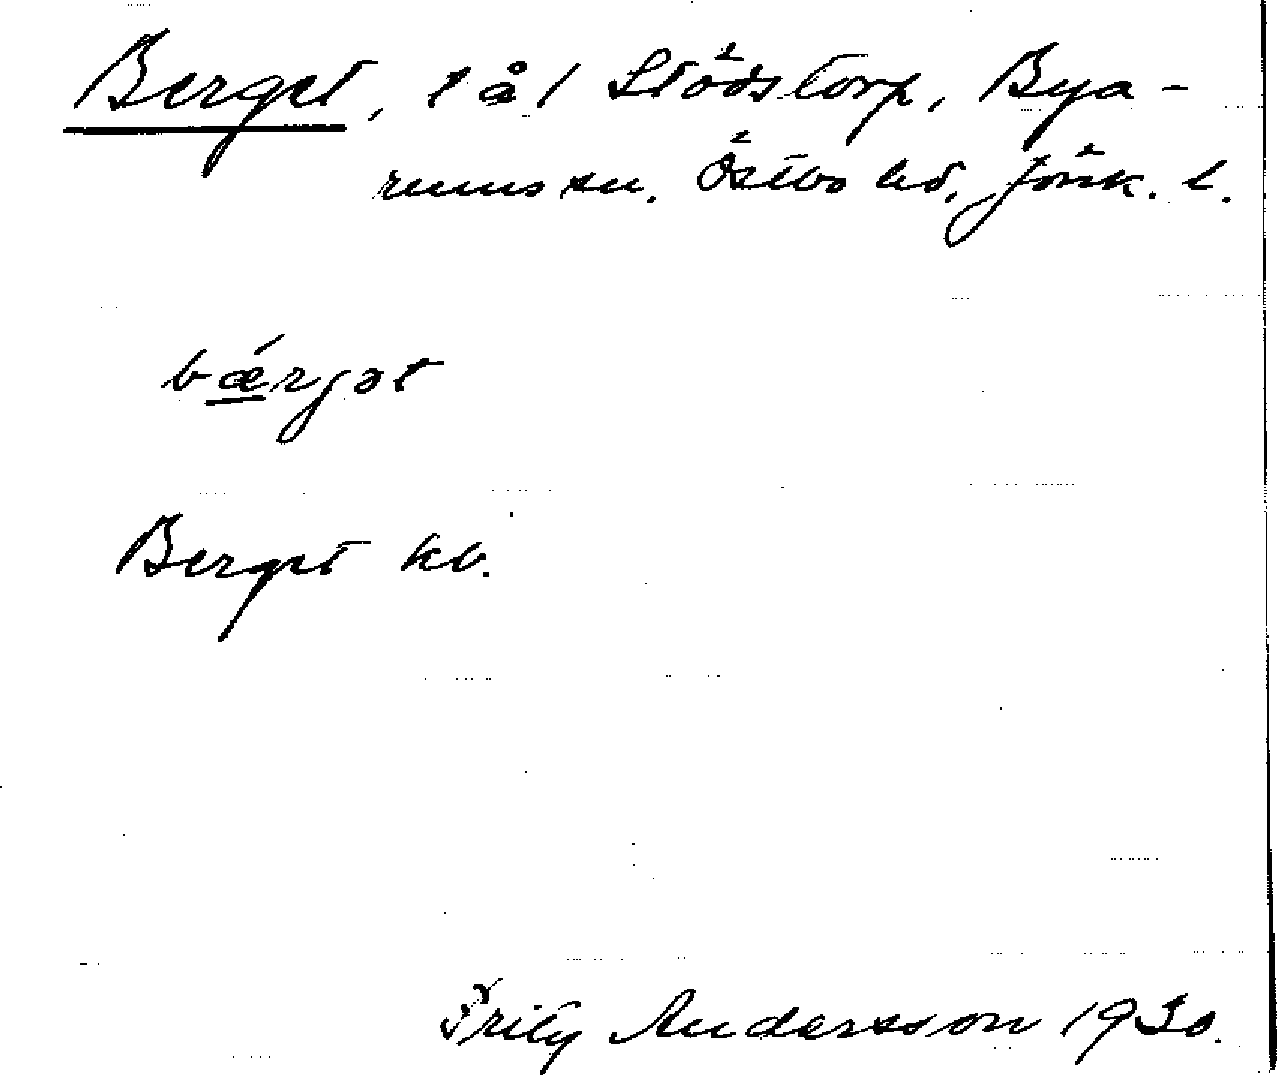 Berget, l å l Stödstorp, Bya-
rums sn. Östbo hd, Jönk. l.
bǽrjət
Berget kb.
Frity Andersson 1930.